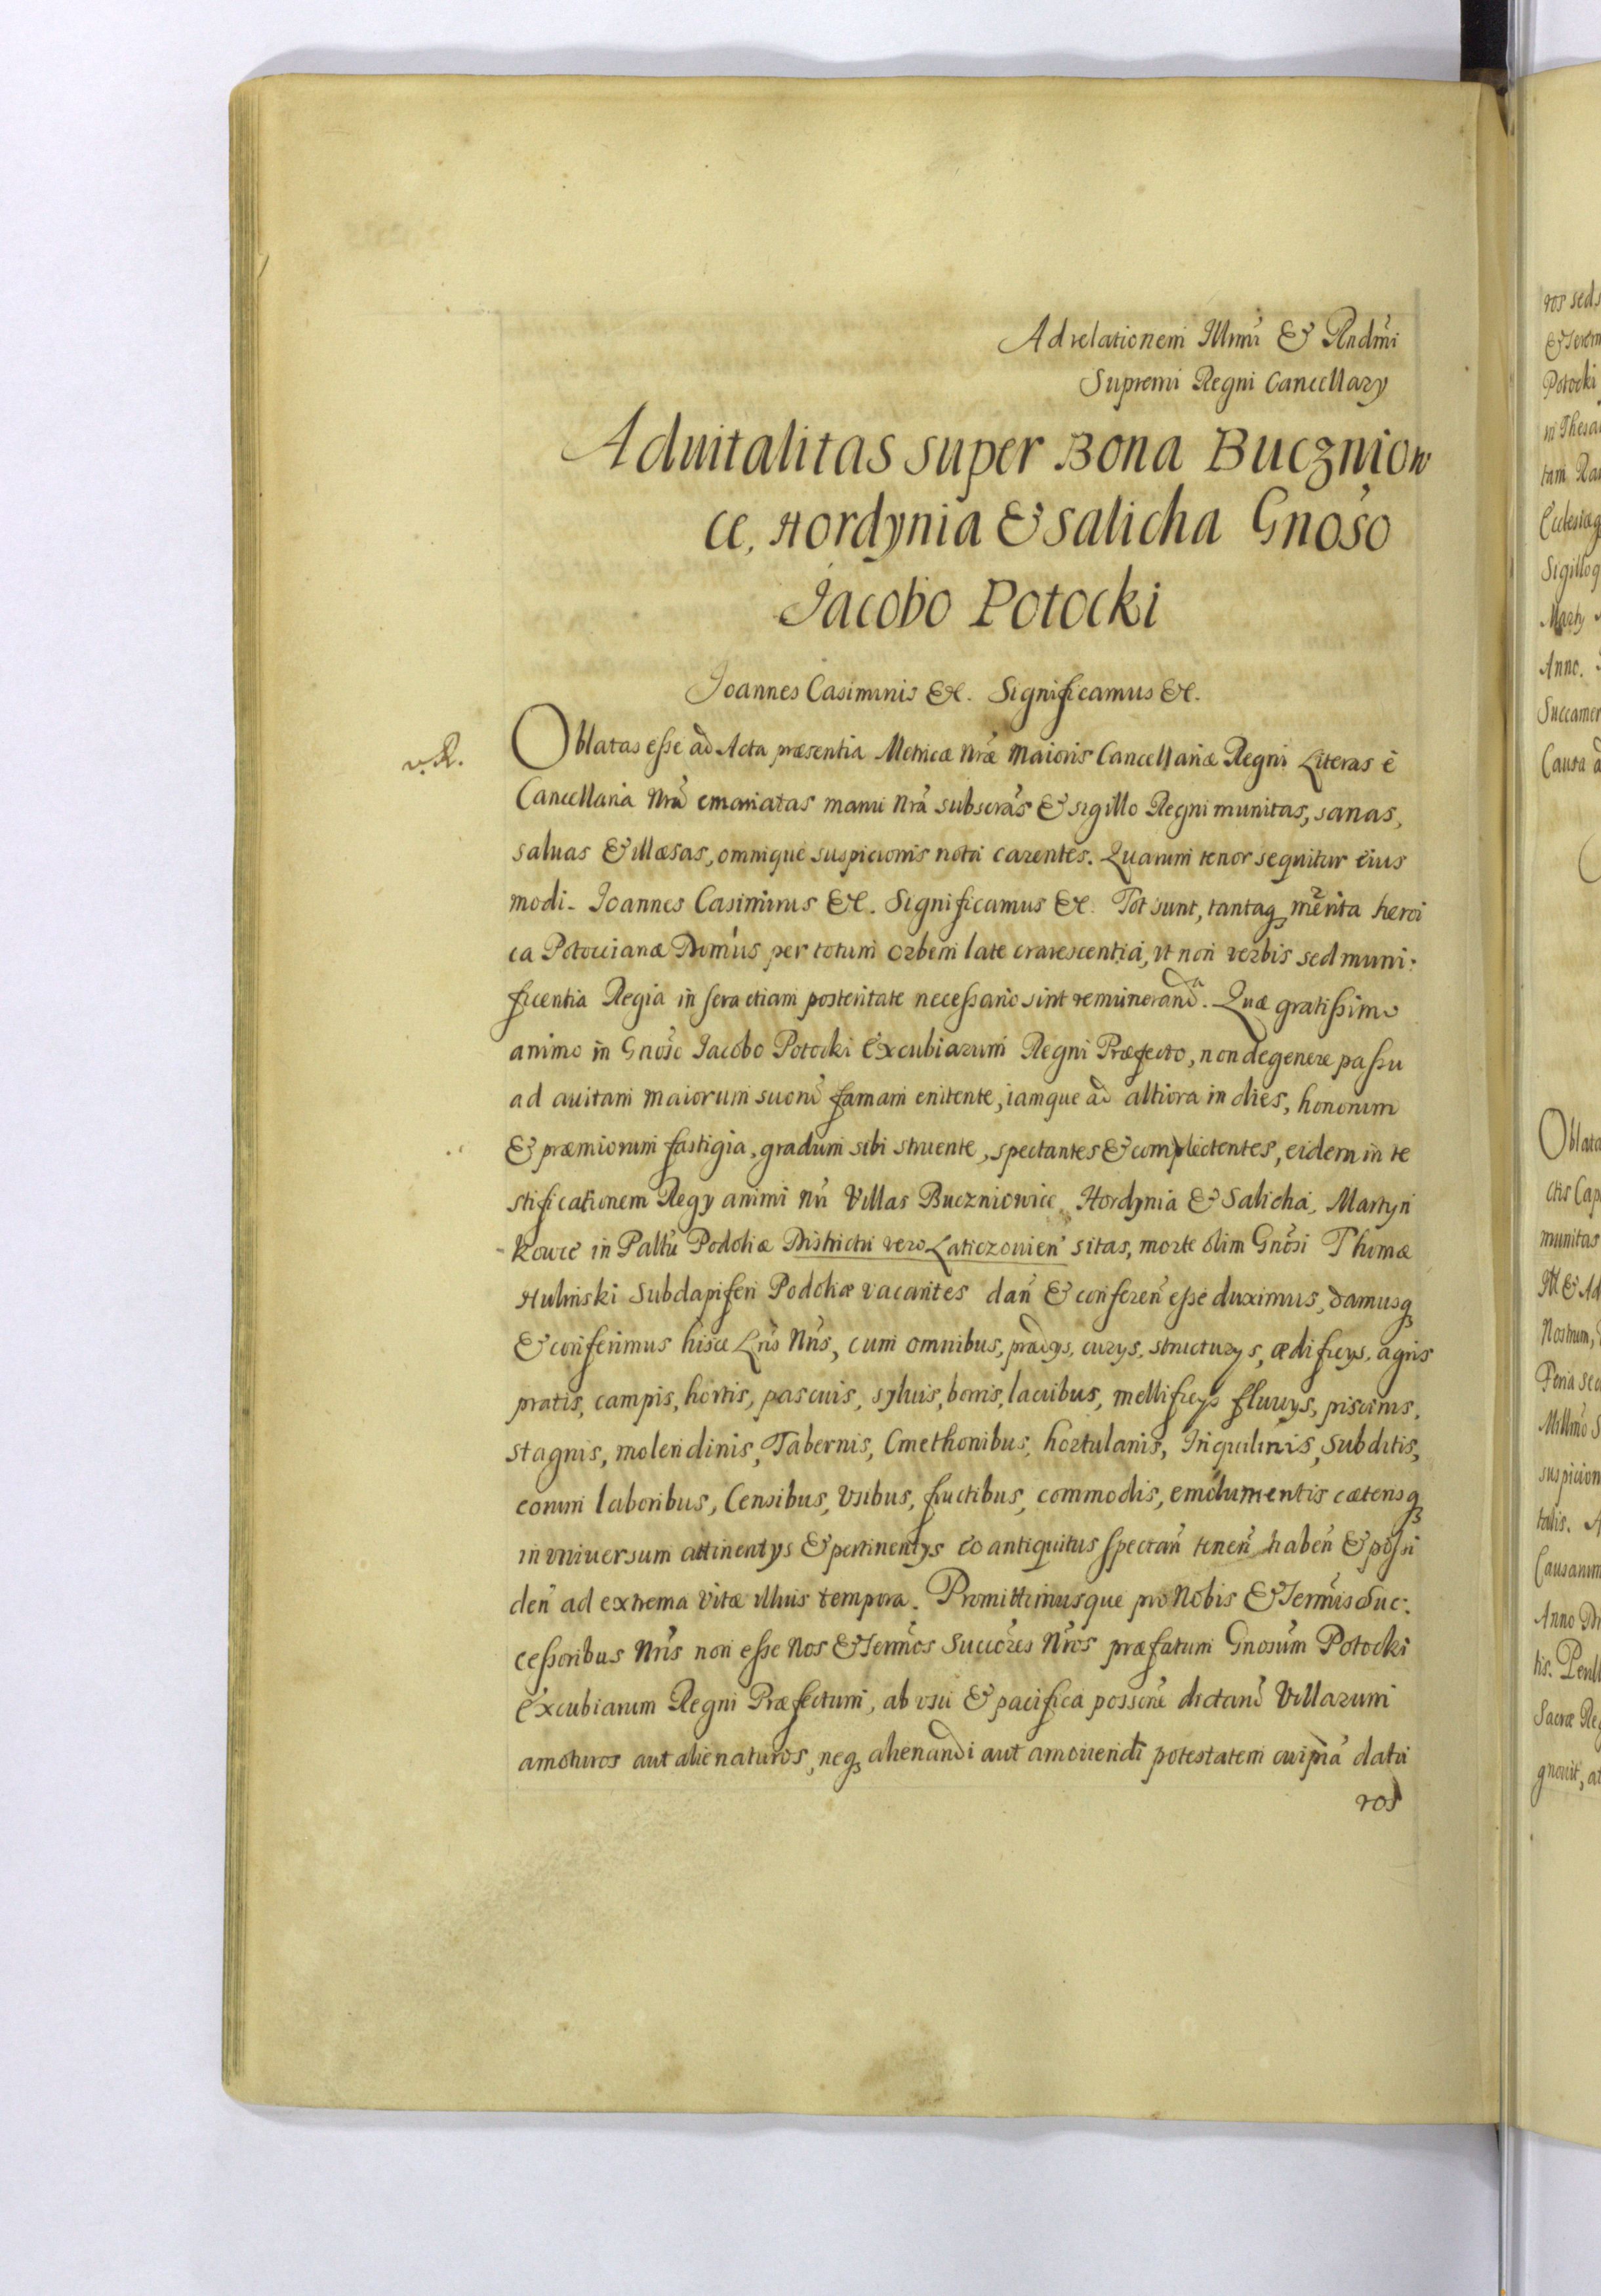 Ad relationem Illmi & Rndmi
Supremi Regni Cancellary
Aduitalitas super Bona Buczniow
ce, Hordynia & Salicha Gnoso
Iacobo Potocki
Ioannes Casimirus &c. Significamus &c.
v. R.
Oblatas esse ad Acta præsentia Metricæ Nræ Maioris Cancellariæ Regni Literas è
Cancellaria Nrã emanatas manu Nrã subscrãs & sigillo Regni munitas, sanas,
saluas & illæsas, omnique suspicionis notã carentes. Quarum tenor sequitur eius
modi. Ioannes Casimirus &c. Significamus &c. Tot sunt, tantaq merita heroi
ca Potoccianæ Domus per totum orbem late crarescentia, vt non verbis sed muni-
ficentia Regia in sera etiam posteritate necessario sint remunerand. Quæ gratissimo
animo in Gnoso Iacobo Potocki Excubiarum Regni Præfecto, non degenere passu
ad auitam maiorum suorũ famam enitente, iamque ad altiora in dies, honorum
& præmiorum fastigia, gradum sibi struente, spectantes & complectentes, eidem in te
stificationem Regy animi Nri Villas Buczniowice, Hordynia & Salicha, Martyn
kowce in Paltu Podoliæ Districtu vero Laticzouien sitas, morte olim Gnosi Thomæ
Hulinski Subdapiferi Podoliæ vacantes dan & conferen esse duximus, damusq
& conferimus hisce Lris Nris, cum omnibus, prædys, curys, structurys, ædificys, agris
pratis, campis, hortis, pascuis, syluis, borris, lacubus, mellificys fluuys, piscinis,
stagnis, molendinis, Tabernis, Cmethonibus, hortulanis, Inquilinis, subditis,
eorum laboribus, Censibus, Vsibus, fructibus, commodis, emolumentis cæterisq
in vniuersum attinentys & pertinentys eo antiquitus spectan tenen haben & possi
den ad extrema vitæ illius tempora. Promittimusque pro Nobis & Sermis Suc-
cessoribus Nris non esse Nos & Sermos Succores Nros præfatum Gnosum Potocki
Excubiarum Regni Præfectum, ab vsu & pacifica possione dictarũ Villarum
amoturos aut alienaturos, neq alienandi aut amouendi potestatem cuipiã datu
ros